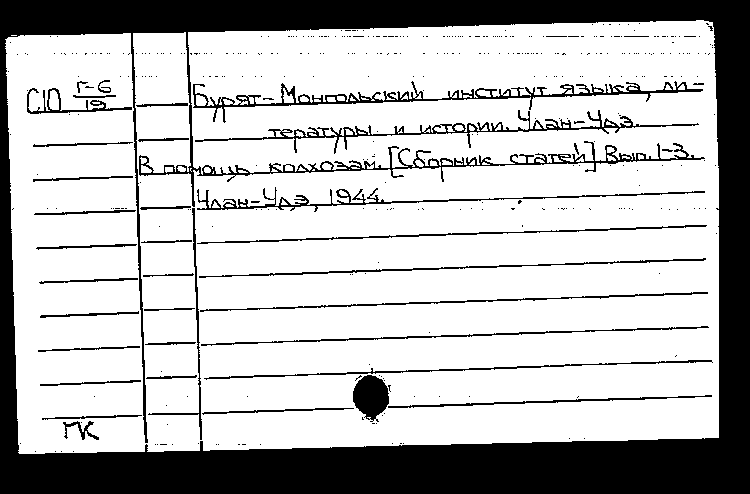 С10 Г-6/19
Бурят-Монгольский институт языка, ли-
тературы и истории. Улан-Удэ.
В помощь колхозам. [Сборник статей] Вып. 1-3.
Улан-Удэ, 1944.
ГК